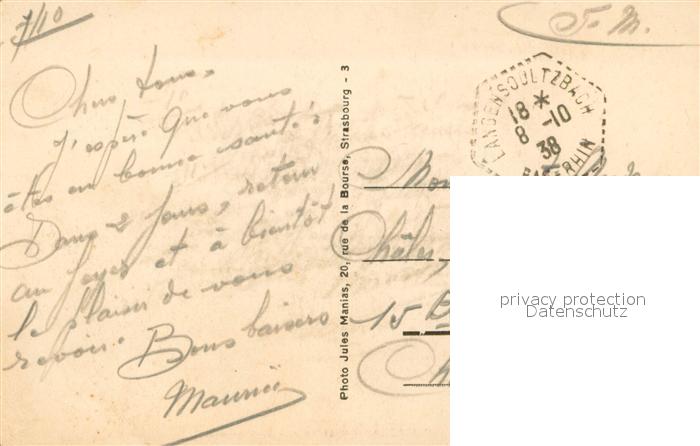 7/10
F. M.
Chers tous,
J'espère que vous
êtes en bonne santé.
Dans 2 jours, retour
au foyer et à bientôt
le plaisir de vous
revoir. Bons baisers
Maurice
Photo Jules Manias, 20, rue de la Bourse, Strasbourg - 3
LANGENSOULTZBACH
18 *
8 -10
38
BAS-RHIN
15 B
privacy protection
Datenschutz